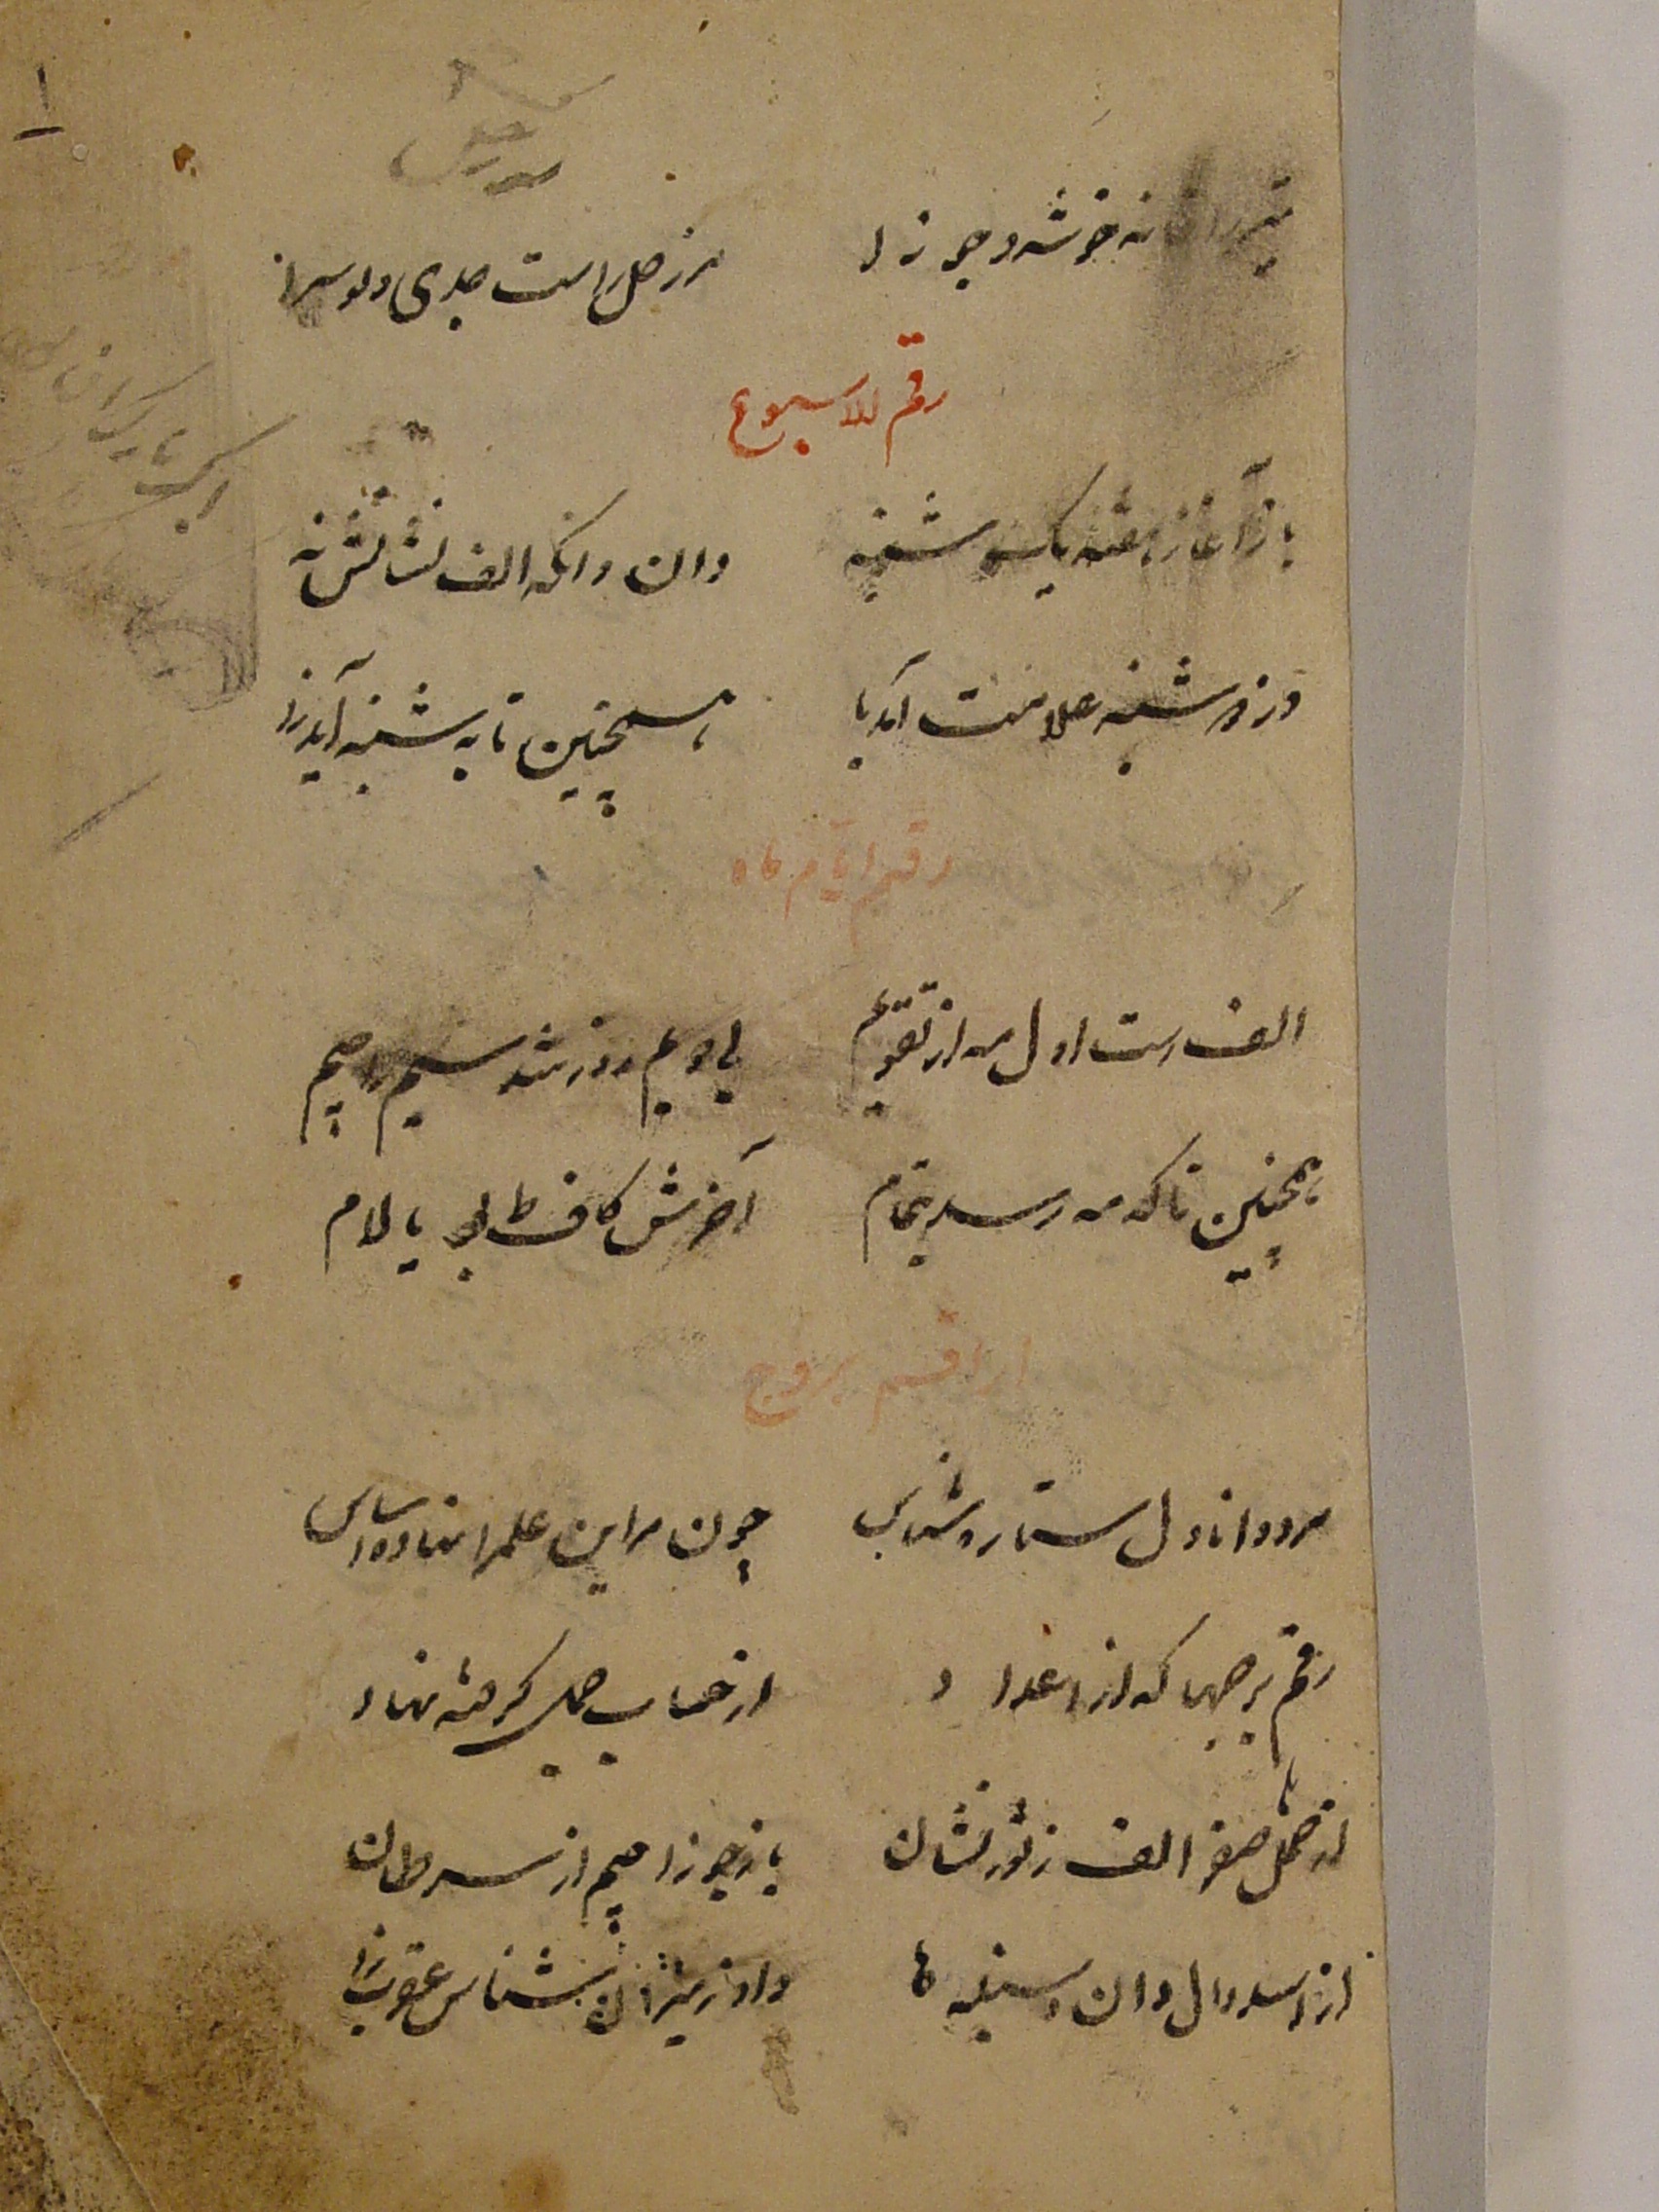 تیر را خانه خوشه و جوزا
مر زحل راست جدی و دلو سرا
رقم الاسبوع
باز آغاز هفته یکشنبه
دان و انکه الف نشانش نه
وز دوشنبه علامت آمد با
همچنین تا به شنبه آید زا
رقم ایام ماه
الف است اول مه از تقویم
بی دویم روز شد سیم را جیم
همچنین تا که مه رسد بتمام
آخرش کاف ط بود یا لام
ارقام بروج
مرد دانا دل ستاره شناس
چون مر این علم را نهاد اساس
رقم برجها که از اعداد
از حساب جمل گرفته نهاد
از حمل صفر الف ز ثور نشان
با ز جوزا جیم از سرطان
از اسد دال دان و سنبله ها
واو ز میزان شناس عقرب زا